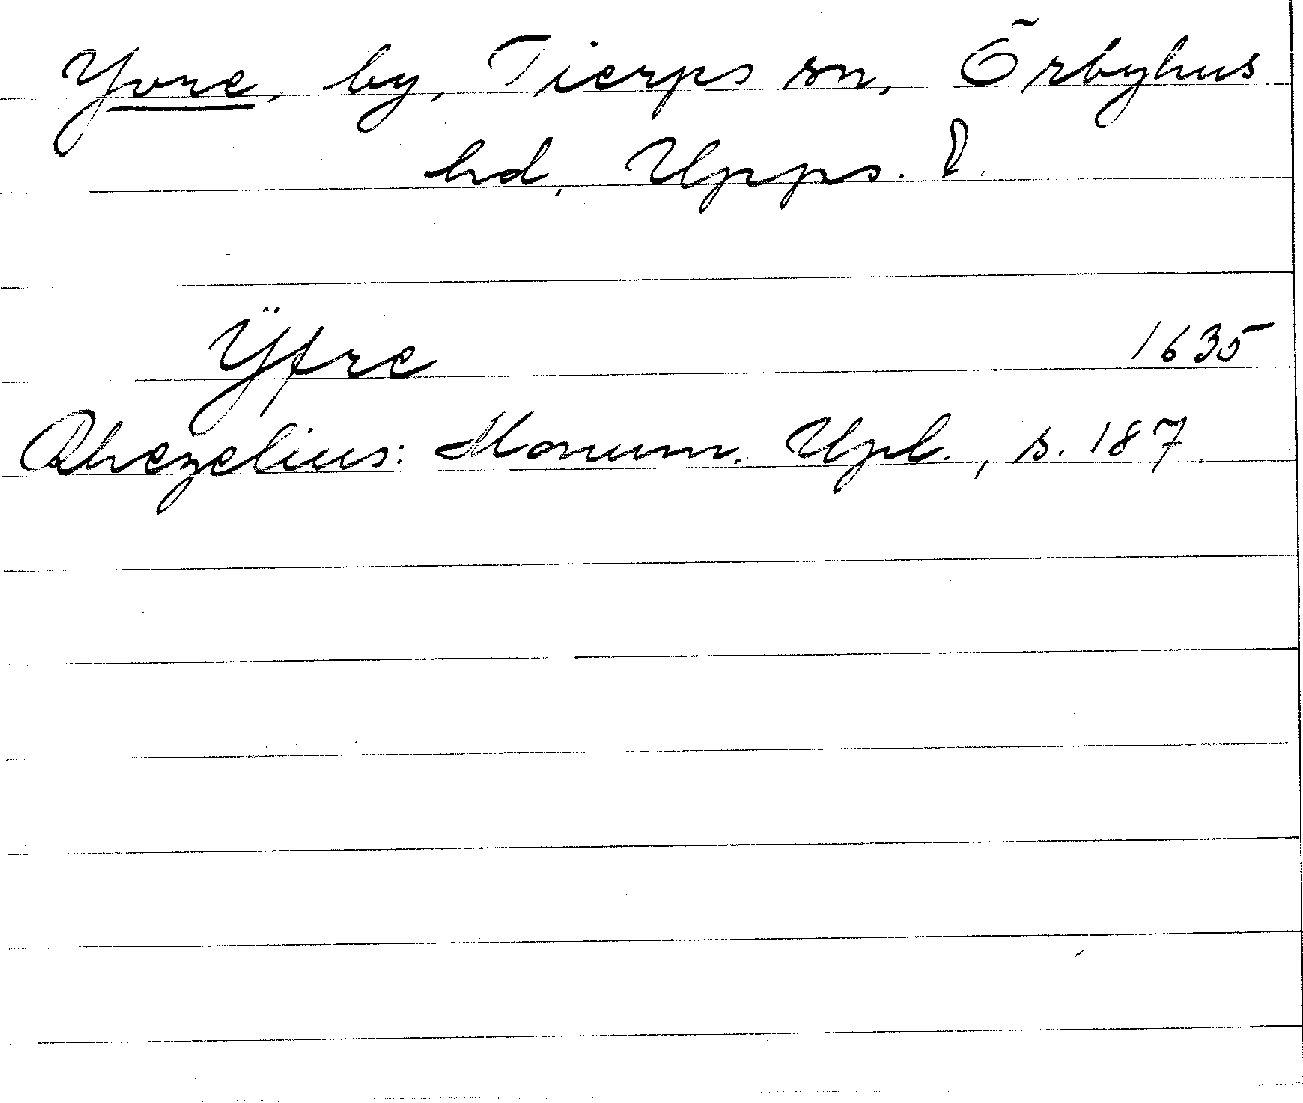 Yvre, by, Tierps sn, Örbyhus
hd, Upps. l.
Ÿfre 1635
Rhezelius: Monum. Upl., s. 187.